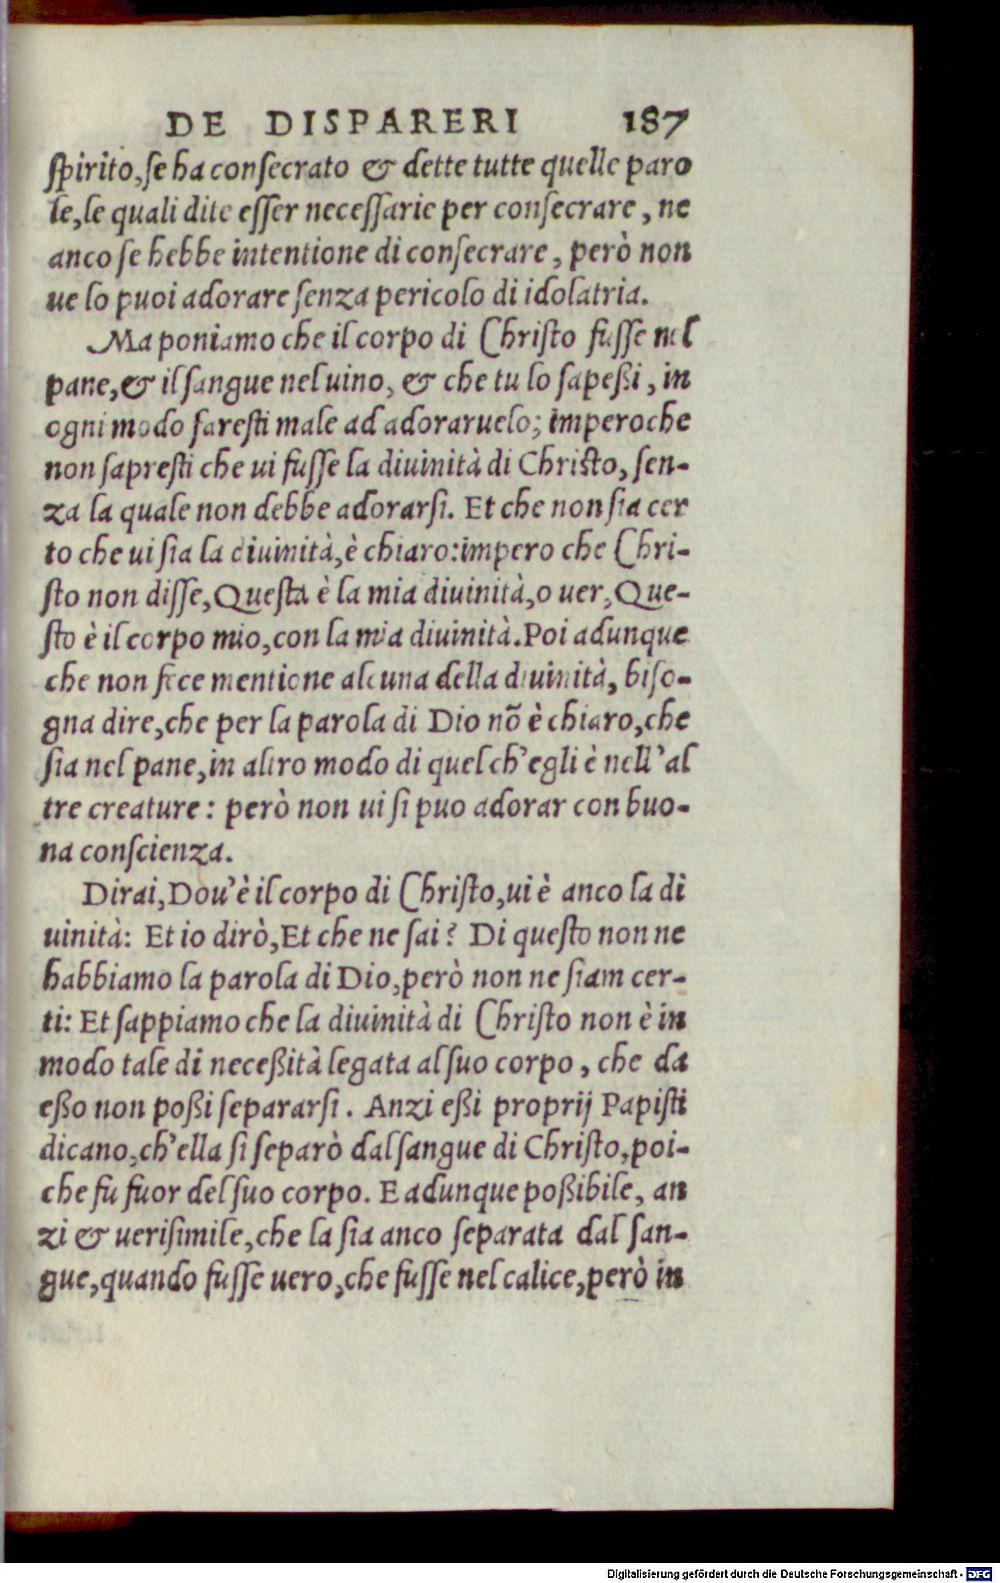 DE DISPARERI 187
ſpirito,ſe ha conſecrato & dette tutte quelle paro
le,le quali dite eſſer neceſſarie per conſecrare, ne
anco ſe hebbe intentione di conſecrare, però non
ue lo puoi adorare ſenza pericolo di idolatria.
Ma poniamo che il corpo di Chriſto fuſſe nel
pane,& il ſangue nel uino, & che tu lo ſapeßi, in
ogni modo fareſti male ad adoraruelo; imperoche
non ſapreſti che ui fuſſe la diuinità di Chriſto, ſen-
za la quale non debbe adorarſi. Et che non ſia cer
to che ui ſia la diuinità,è chiaro:impero che Chri-
ſto non diſſe,Queſta è la mia diuinità,o uer,Que-
ſto è il corpo mio,con la mia diuinità.Poi adunque
che non fece mentione alcuna della diuinità, biſo-
gna dire,che per la parola di Dio nõ è chiaro,che
ſia nel pane,in altro modo di quel ch'egli è nell'al
tre creature: però non ui ſi puo adorar con buo-
na conſcienza.
Dirai,Dou'è il corpo di Chriſto,ui è anco la di
uinità: Et io dirò,Et che ne ſai? Di queſto non ne
habbiamo la parola di Dio,però non ne ſiam cer-
ti: Et ſappiamo che la diuinità di Chriſto non è in
modo tale di neceßità legata al ſuo corpo, che da
eßo non poßi ſepararſi. Anzi eßi proprij Papiſti
dicano,ch'ella ſi ſeparò dal ſangue di Chriſto,poi-
che fu fuor del ſuo corpo. E adunque poßibile, an
zi & ueriſimile,che la ſia anco ſeparata dal ſan-
gue,quando fuſſe uero,che fuſſe nel calice,però in
Digitalisierung gefördert durch die Deutsche Forschungsgemeinschaft - DFG